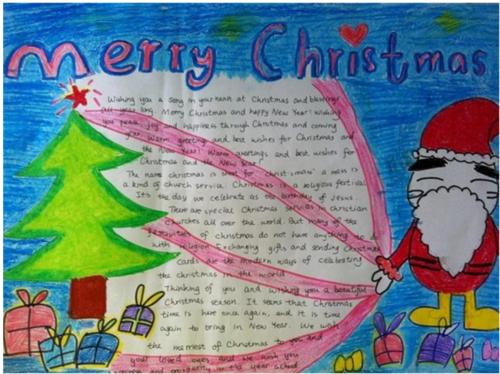 Merry Christmas
Wishing you a song in your heart at Christmas and blessings
all year long. Merry Christmas and happy New Year! Wishing
you peace, joy and happiness through Christmas and coming
year. Warm greetings and best wishes for Christmas and
the New Year! Warm greetings and best wishes for
Christmas and the New Year!
The name christmas is short for 'christ-mass' a mass is
a kind of church service. Christmas is a religious festival.
It's the day we celebrate as the birthday of Jesus.
There are special Christmas services in christian
churches all over the world. But many of the
festivities of christmas do not have anything
with religion Exchanging gifts and sending Christmas
Cards are the modern ways of celebrating
the christmas in the world
Thinking of you and wishing you a beautiful
Christmas season. It seems that Christmas
time is here once again, and it is time
again to bring in New Year. We wish
the merriest of Christmas to you and
your loved ones, and we wish you
and in the year